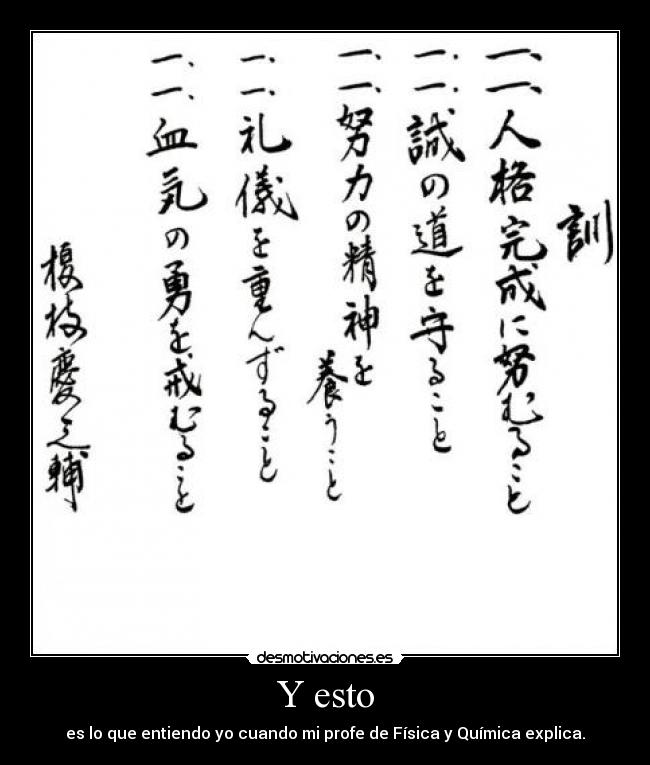 訓
一、一、人格完成に努むること
一、一、誠の道を守ること
一、一、努力の精神を養うこと
一、一、礼儀を重んずること
一、一、血気の勇を戒むること
榎枝慶之輔
desmotivaciones.es
Y esto
es lo que entiendo yo cuando mi profe de Física y Química explica.